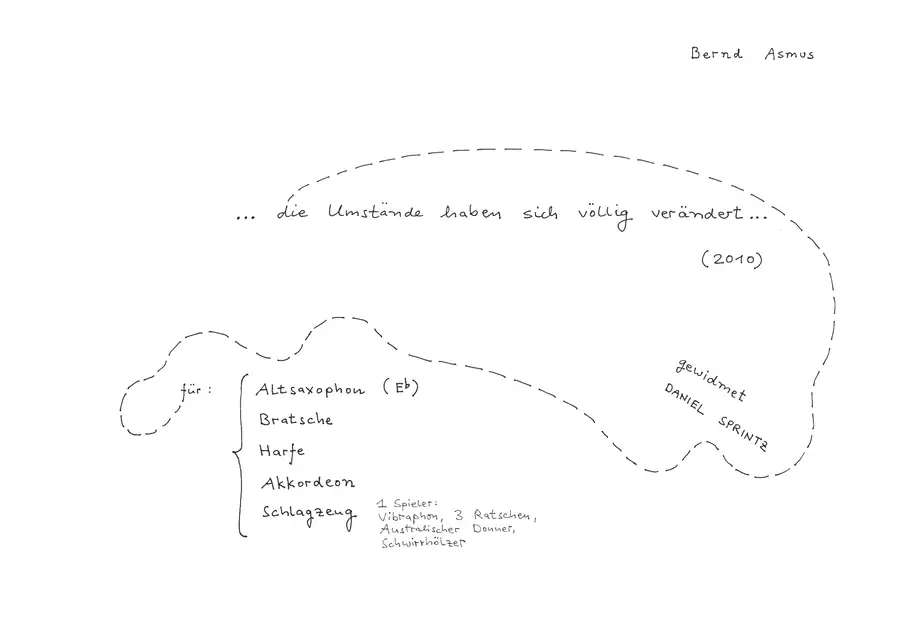 Bernd Asmus
... die Umstände haben sich völlig verändert...
(2010)
gewidmet
DANIEL SPRINTZ
für:
Altsaxophon (Eb)
Bratsche
Harfe
Akkordeon
Schlagzeug
1 Spieler:
Vibraphon, 3 Ratschen,
Australischer Donner,
Schwirrhölzer